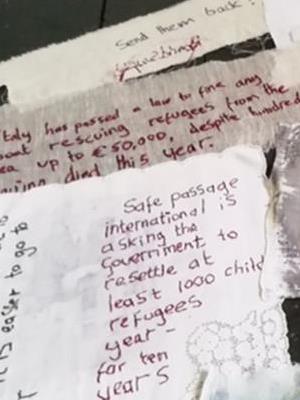 Send them back!
Italy has passed a law to fine any
boat rescuing refugees from the
sea up to €50,000, despite hundreds
having died this year.
Safe passage
international is
asking the
government to
resettle at
least 1000 child
refugees
year -
for ten
years
it is easier to go to